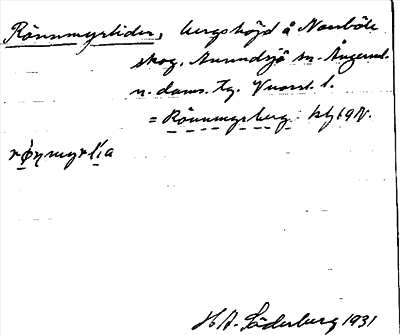 Rönnmyrliden, bergshöjd å Norrböle
skog, Anundsjö sn. Ångerml.
n. doms. tg. Vnorrl. l.
= Rönnmysberg
rönmyrlia
H. A. Söderberg 1931